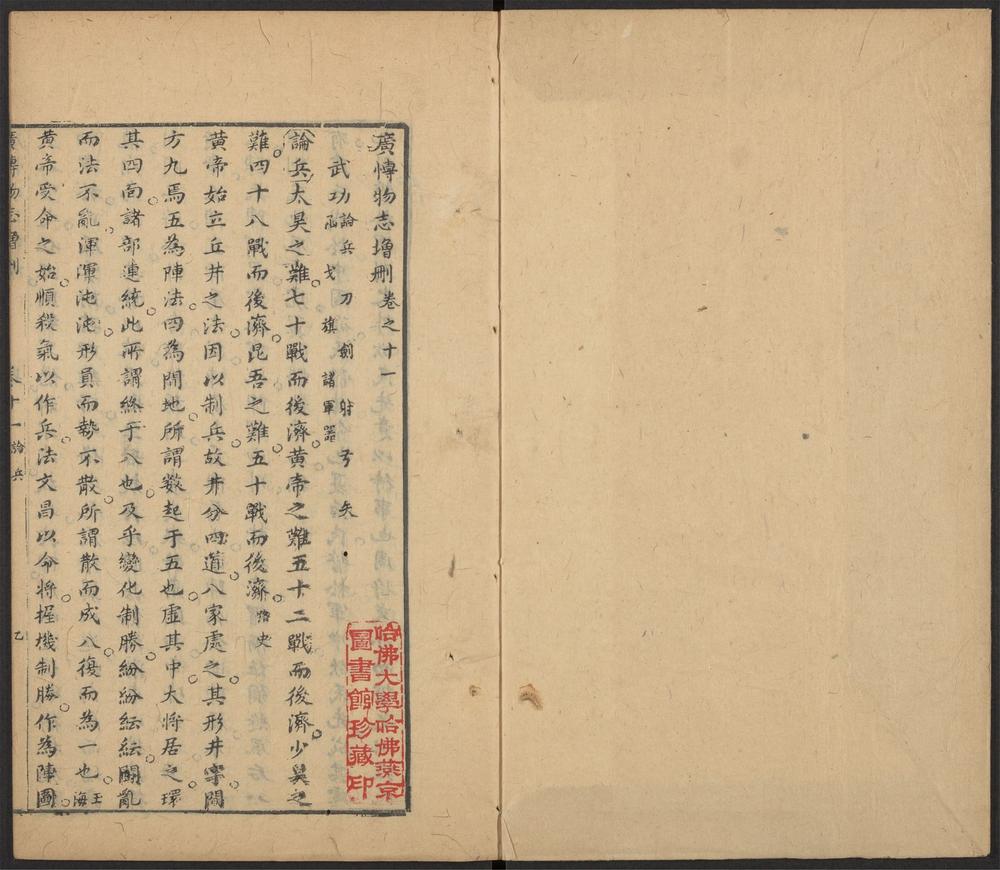 廣愽物志增刪卷之十一
武功論兵 刀 劍 射 弓 矢
戈 旗 諸軍器
論兵太昊之難七十戰而後濟黄帝之難五十二戰而後濟少昊之
難四十八戰而後濟昆吾之難五十戰而後濟路史
黄帝始立丘井之法因以制兵故井分四道八家處之其形井字開
方九焉五為陣法四為閒地所謂数起于五也虛其中大將居之環
其四面諸部連繞此所謂終于八也及乎變化制勝紛紛紜紜鬭亂
而法不亂渾渾沌沌形員而勢不散所謂散而成八復而為一也王海
黄帝受命之始順殺氣以作兵法文昌以命將握機制勝作為陣圖
廣愽物志增刪 卷十一 論兵 乙
哈佛大學哈佛燕京
圖書館珍藏印